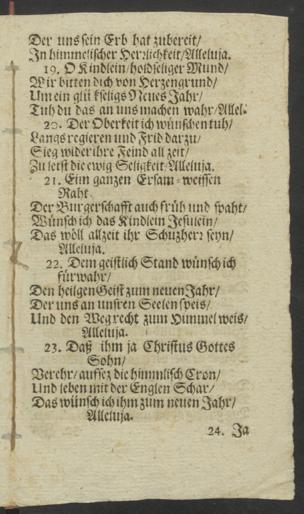 Der uns sein Erb hat zubereit/
In himmelischer Herzlichkeit/Alleluja.
19. O Kindlein/holdseliger Mund/
Wir bitten dich von Herzengrund/
Um ein glückseligs Neues Jahr/
Tuh du das an uns machen wahr/Allel.
20. Der Oberkeit ich wünschen tuh/
Langs regieren und Frid darzu/
Sieg wider ihre Feind all zeit/
Zu letst die ewig Seligkeit/Alleluja.
21. Eim ganzen Ersam-weissen
Raht.
Der Burgerschafft auch früh und spaht/
Wünsch ich das Kindlein Jesulein/
Das wöll allzeit ihr Schuzherr seyn/
Alleluja.
22. Dem geistlich Stand wünsch ich
fürwahr/
Den heilgen Geist zum neuen Jahr/
Der uns an unsren Seelen speis/
Und den Weg recht zum Himmel weis/
Alleluja.
23. Daß ihm ja Christus Gottes
Sohn/
Verehr/aufsez die himmlisch Cron/
Und leben mit der Englen Schar/
Das wünsch ich ihm zum neuen Jahr/
Alleluja.
24. Ja